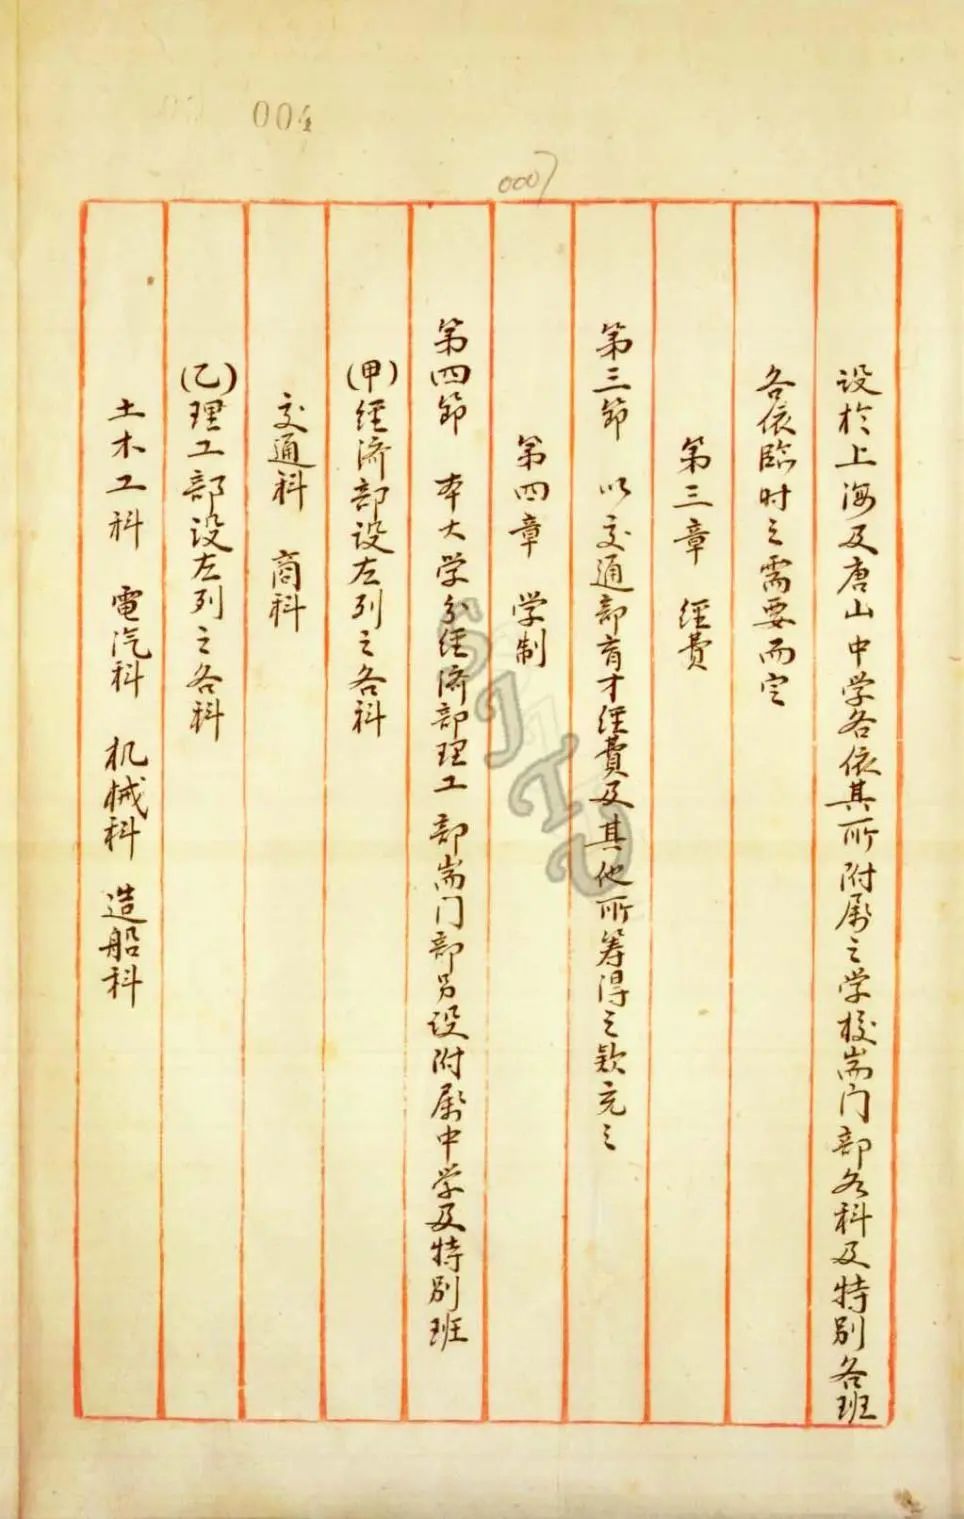 004
0007
设於上海及唐山中学各依其所附属之学校耑门部各科及特别各班
各依臨时之需要而定
第三章 經費
第三節 以交通部育才經費及其他所筹得之款充之
第四章 学制
第四節 本大学分經濟部理工部耑门部另设附属中学及特别班
(甲)經濟部设左列之各科
交通科 商科
(乙)理工部设左列之各科
土木工科 電汽科 机械科 造船科
SJTU